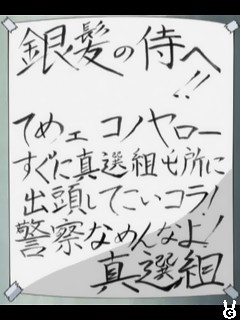 銀髪の侍へ
!!
てめェ コノヤロー
すぐに真選組屯所に
出頭してこいコラ!
警察なめんなよ!
真選組